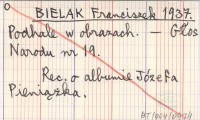 BIELAK Franciszek 1937.
Podhale w obrazach. – Głos
Narodu nr 19.
Rec. o albumie Józefa
Pieniążka.